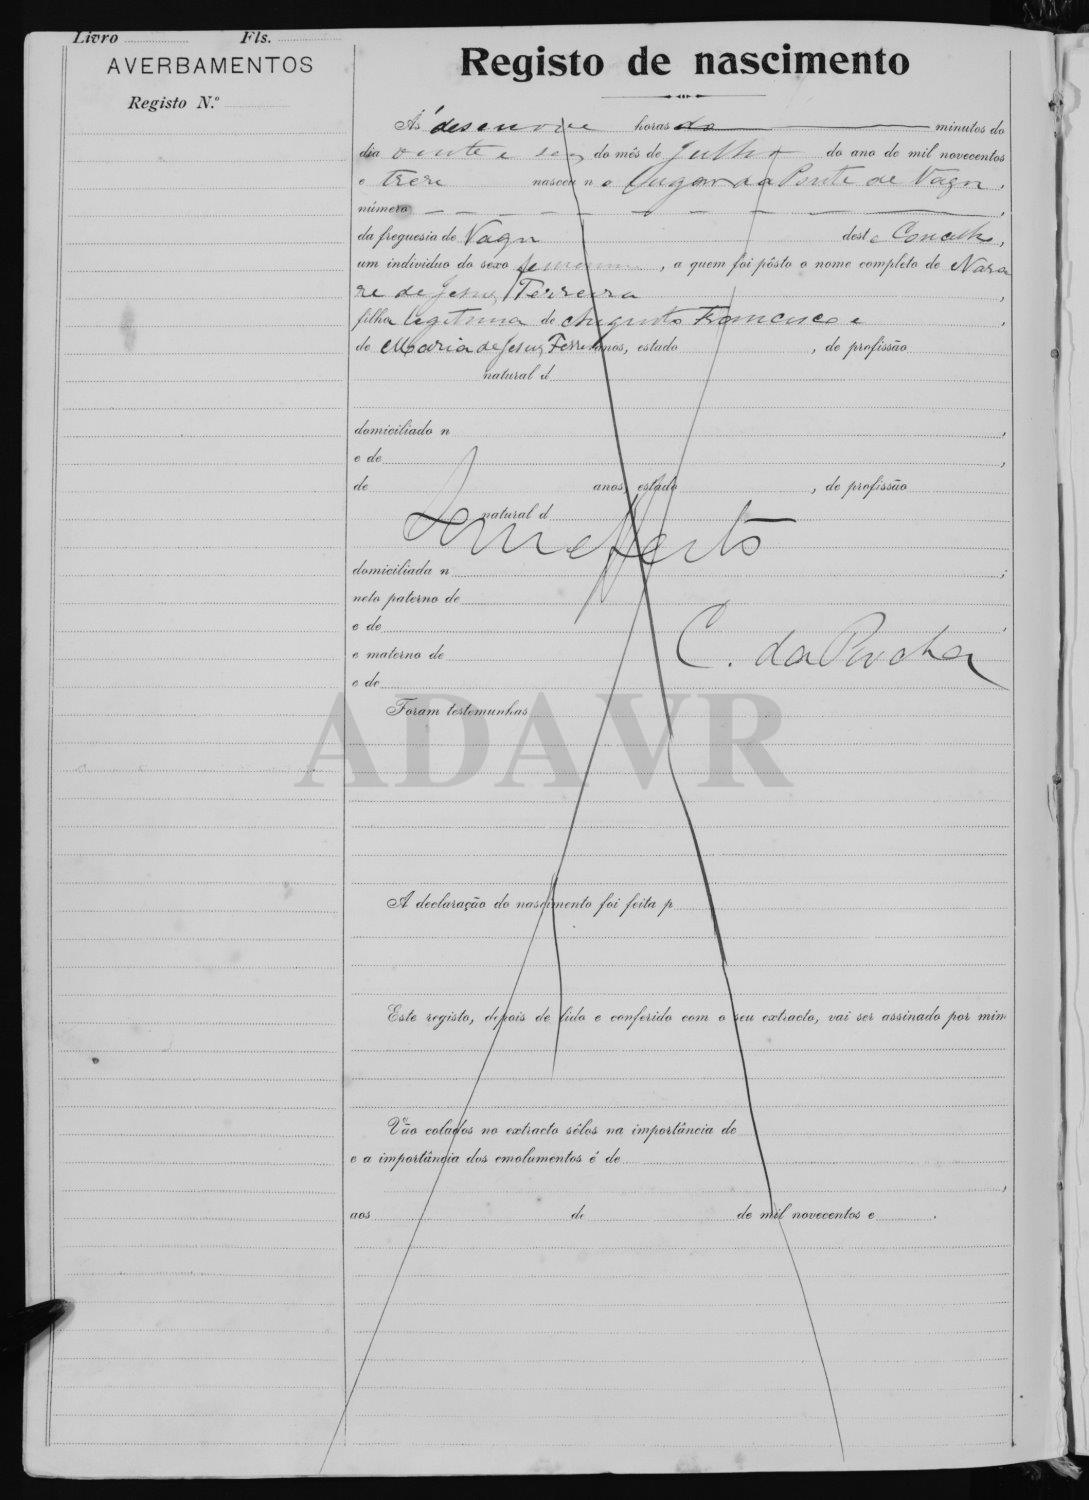 Livro Fls.
AVERBAMENTOS
Registo N.º
Registo de nascimento
Ás desenove horas do minutos do
dia vinte e seis do mês de Julho do ano de mil novecentos
e treze nasceu n o lugar da Ponte de Vagos,
número
da freguesia de Vagos dest e Concelho,
um individuo do sexo feminino, a quem foi pôsto o nome completo de Naza
ré de Jesus Ferreira,
filha legitima de Augusto Francisco e,
de Maria de Jesus Ferreira anos, estado, de profissão
natural d
domiciliado n,
e de,
de anos, estado, de profissão
natural d
Sem effeito
domiciliada n;
neto paterno de
e de,
e materno de
C. da Rocha
e de
Foram testemunhas
ADAVR
A declaração do nascimento foi feita p
Este registo, depois de lido e conferido com o seu extracto, vai ser assinado por mim
Vão colados no extracto sêlos na importância de
e a importância dos emolumentos é de,
aos de de mil novecentos e.